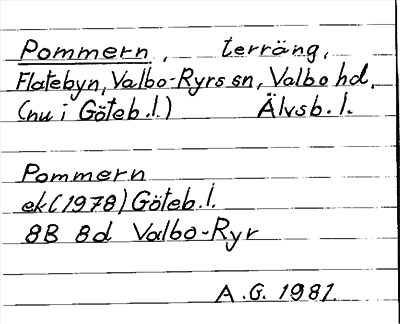 Pommern, terräng,
Flatebyn, Valbo-Ryrs sn, Valbo hd,
(nu i Göteb.l.) Älvsb.l.
Pommern
ek(1978) Göteb.l.
8B 8d Valbo-Ryr
A.G. 1981.